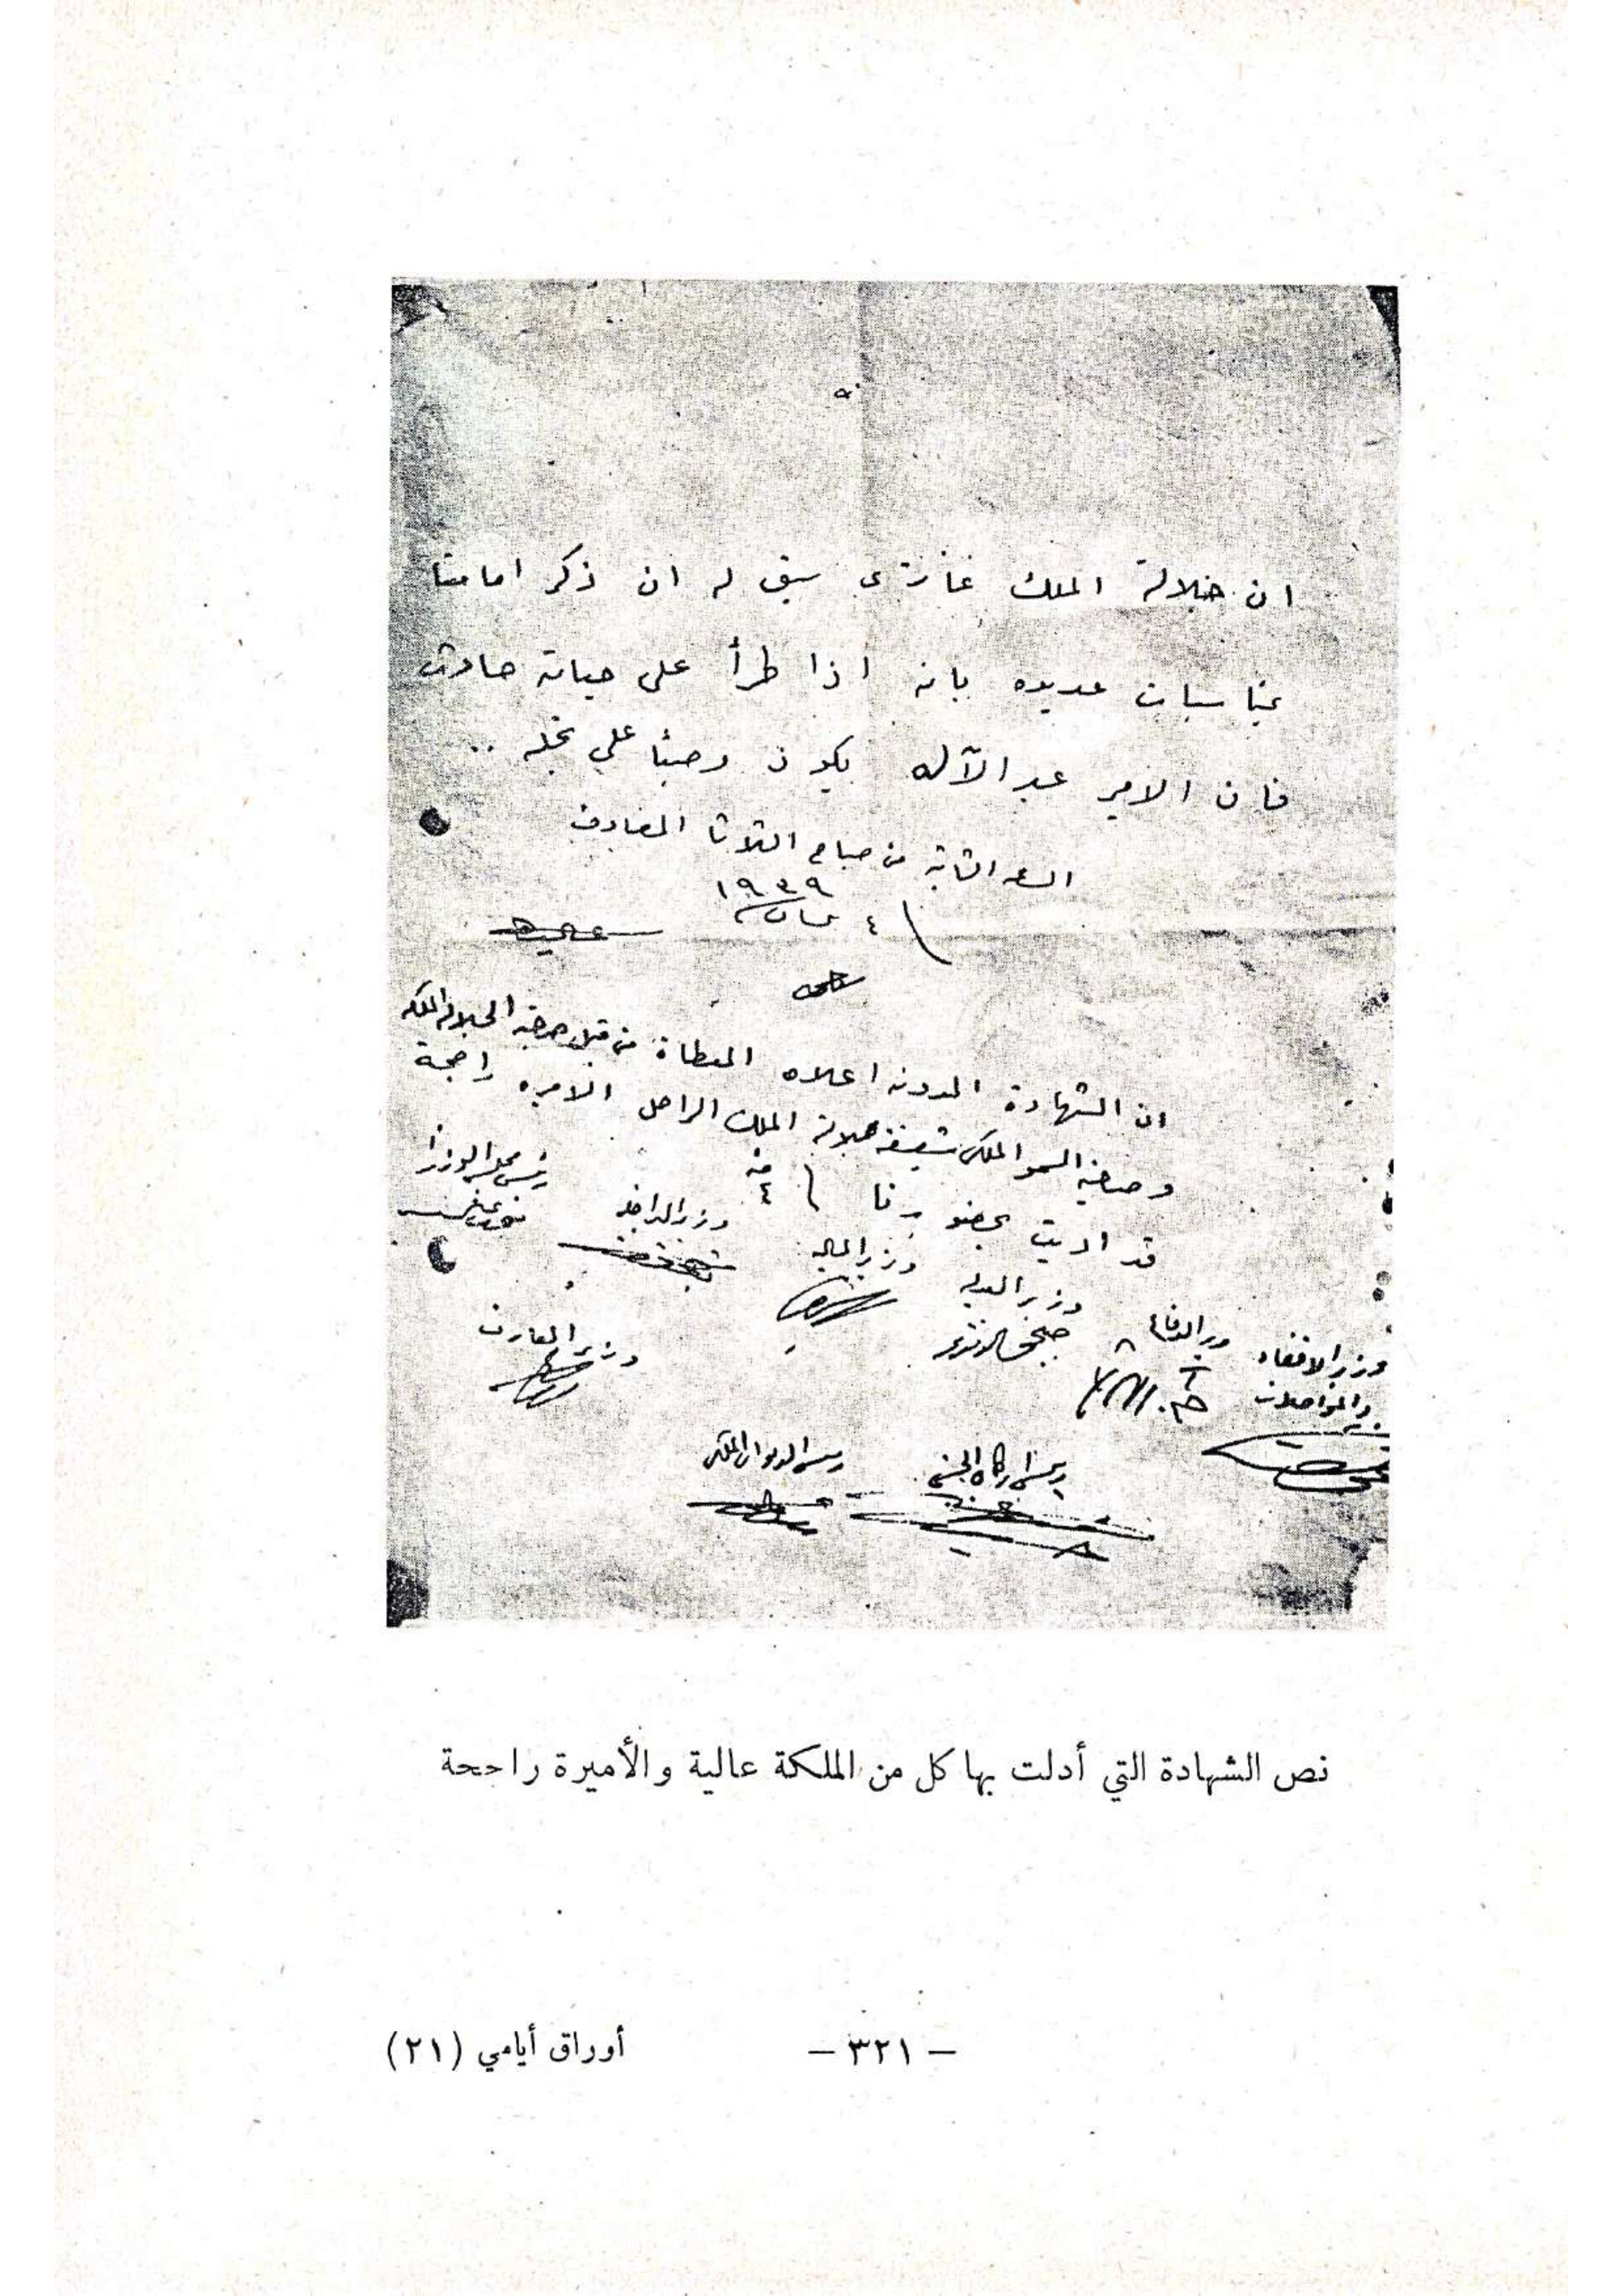 ان جلالة الملك غازي سبق له ان ذكر امامنا
بمناسبات عديده بانه اذا طرأ على حياته حادث
فان الامير عبد الآله يكون وصيا على نجله ..
الساعه الثانية من صباح الثلاثا المصادف
٤ نيسان ١٩٣٩
ان الشهادة المدونه اعلاه المعطاة من قبل صاحبة الجلاله الملكه
وصاحبة السمو الملكي شقيقة جلالة الملك الراحل الاميره راجحة
قد اديت بحضورنا
رئيس مجلس الوزرا
وزير الداخليه
وزير الماليه
وزير العدليه
وزير الدفاع
وزير الاقتصاد
والمواصلات
وزير المعارف
رئيس اركان الجيش
رئيس الديوان الملكي
نص الشهادة التي أدلت بها كل من الملكة عالية والأميرة راجحة
– ٣٢١ –
أوراق أيامي (٢١)